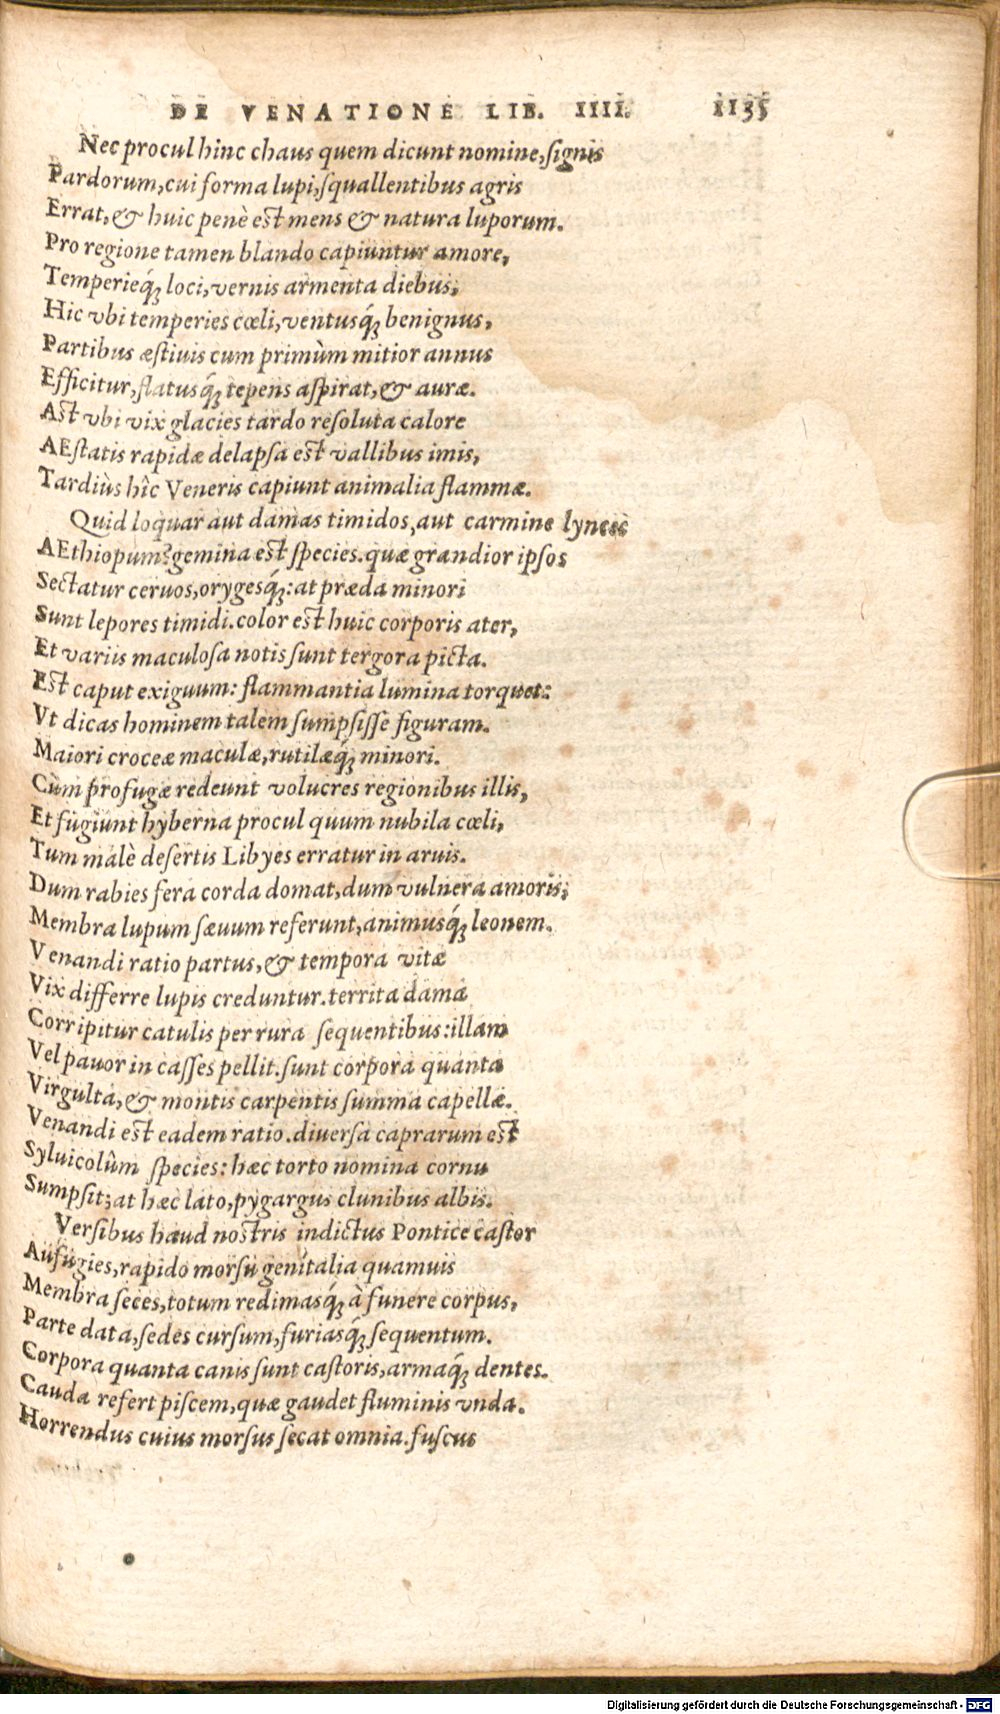 DE VENATIONE LIB. IIII. 1135
Nec procul hinc chaus quem dicunt nomine, signis
Pardorum, cui forma lupi, squallentibus agris
Errat, & huic penè est mens & natura luporum.
Pro regione tamen blando capiuntur amore,
Temperieq́; loci, vernis armenta diebus,
Hic vbi temperies cœli, ventusq́; benignus,
Partibus æstiuis cum primùm mitior annus
Efficitur, flatusq́; tepens aspirat, & auræ.
Ast vbi vix glacies tardo resoluta calore
AEstatis rapidæ delapsa est vallibus imis,
Tardiùs hîc Veneris capiunt animalia flammæ.
Quid loquar aut damas timidos, aut carmine lynces
AEthiopum? gemina est species. quæ grandior ipsos
Sectatur ceruos, orygesq́;: at præda minori
Sunt lepores timidi. color est huic corporis ater,
Et variis maculosa notis sunt tergora picta.
Est caput exiguum: flammantia lumina torquet:
Vt dicas hominem talem sumpsisse figuram.
Maiori croceæ maculæ, rutilæq́; minori.
Cùm profugæ redeunt volucres regionibus illis,
Et fugiunt hyberna procul quum nubila cœli,
Tum malè desertis Libyes erratur in aruis.
Dum rabies fera corda domat, dum vulnera amoris;
Membra lupum sæuum referunt, animusq́; leonem.
Venandi ratio partus, & tempora vitæ
Vix differre lupis creduntur. territa dama
Corripitur catulis per rura sequentibus: illam
Vel pauor in casses pellit. sunt corpora quanta
Virgulta, & montis carpentis summa capellæ.
Venandi est eadem ratio. diuersa caprarum est
Syluicolûm species: hæc torto nomina cornu
Sumpsit; at hæc lato, pygargus clunibus albis.
Versibus haud nostris indictus Pontice castor
Aufugies, rapido morsu genitalia quamuis
Membra seces, totum redimasq́; à funere corpus,
Parte data, sedes cursum, furiasq́; sequentum.
Corpora quanta canis sunt castoris, armaq́; dentes.
Cauda refert piscem, quæ gaudet fluminis vnda.
Horrendus cuius morsus secat omnia. fuscus
Digitalisierung gefördert durch die Deutsche Forschungsgemeinschaft - DFG